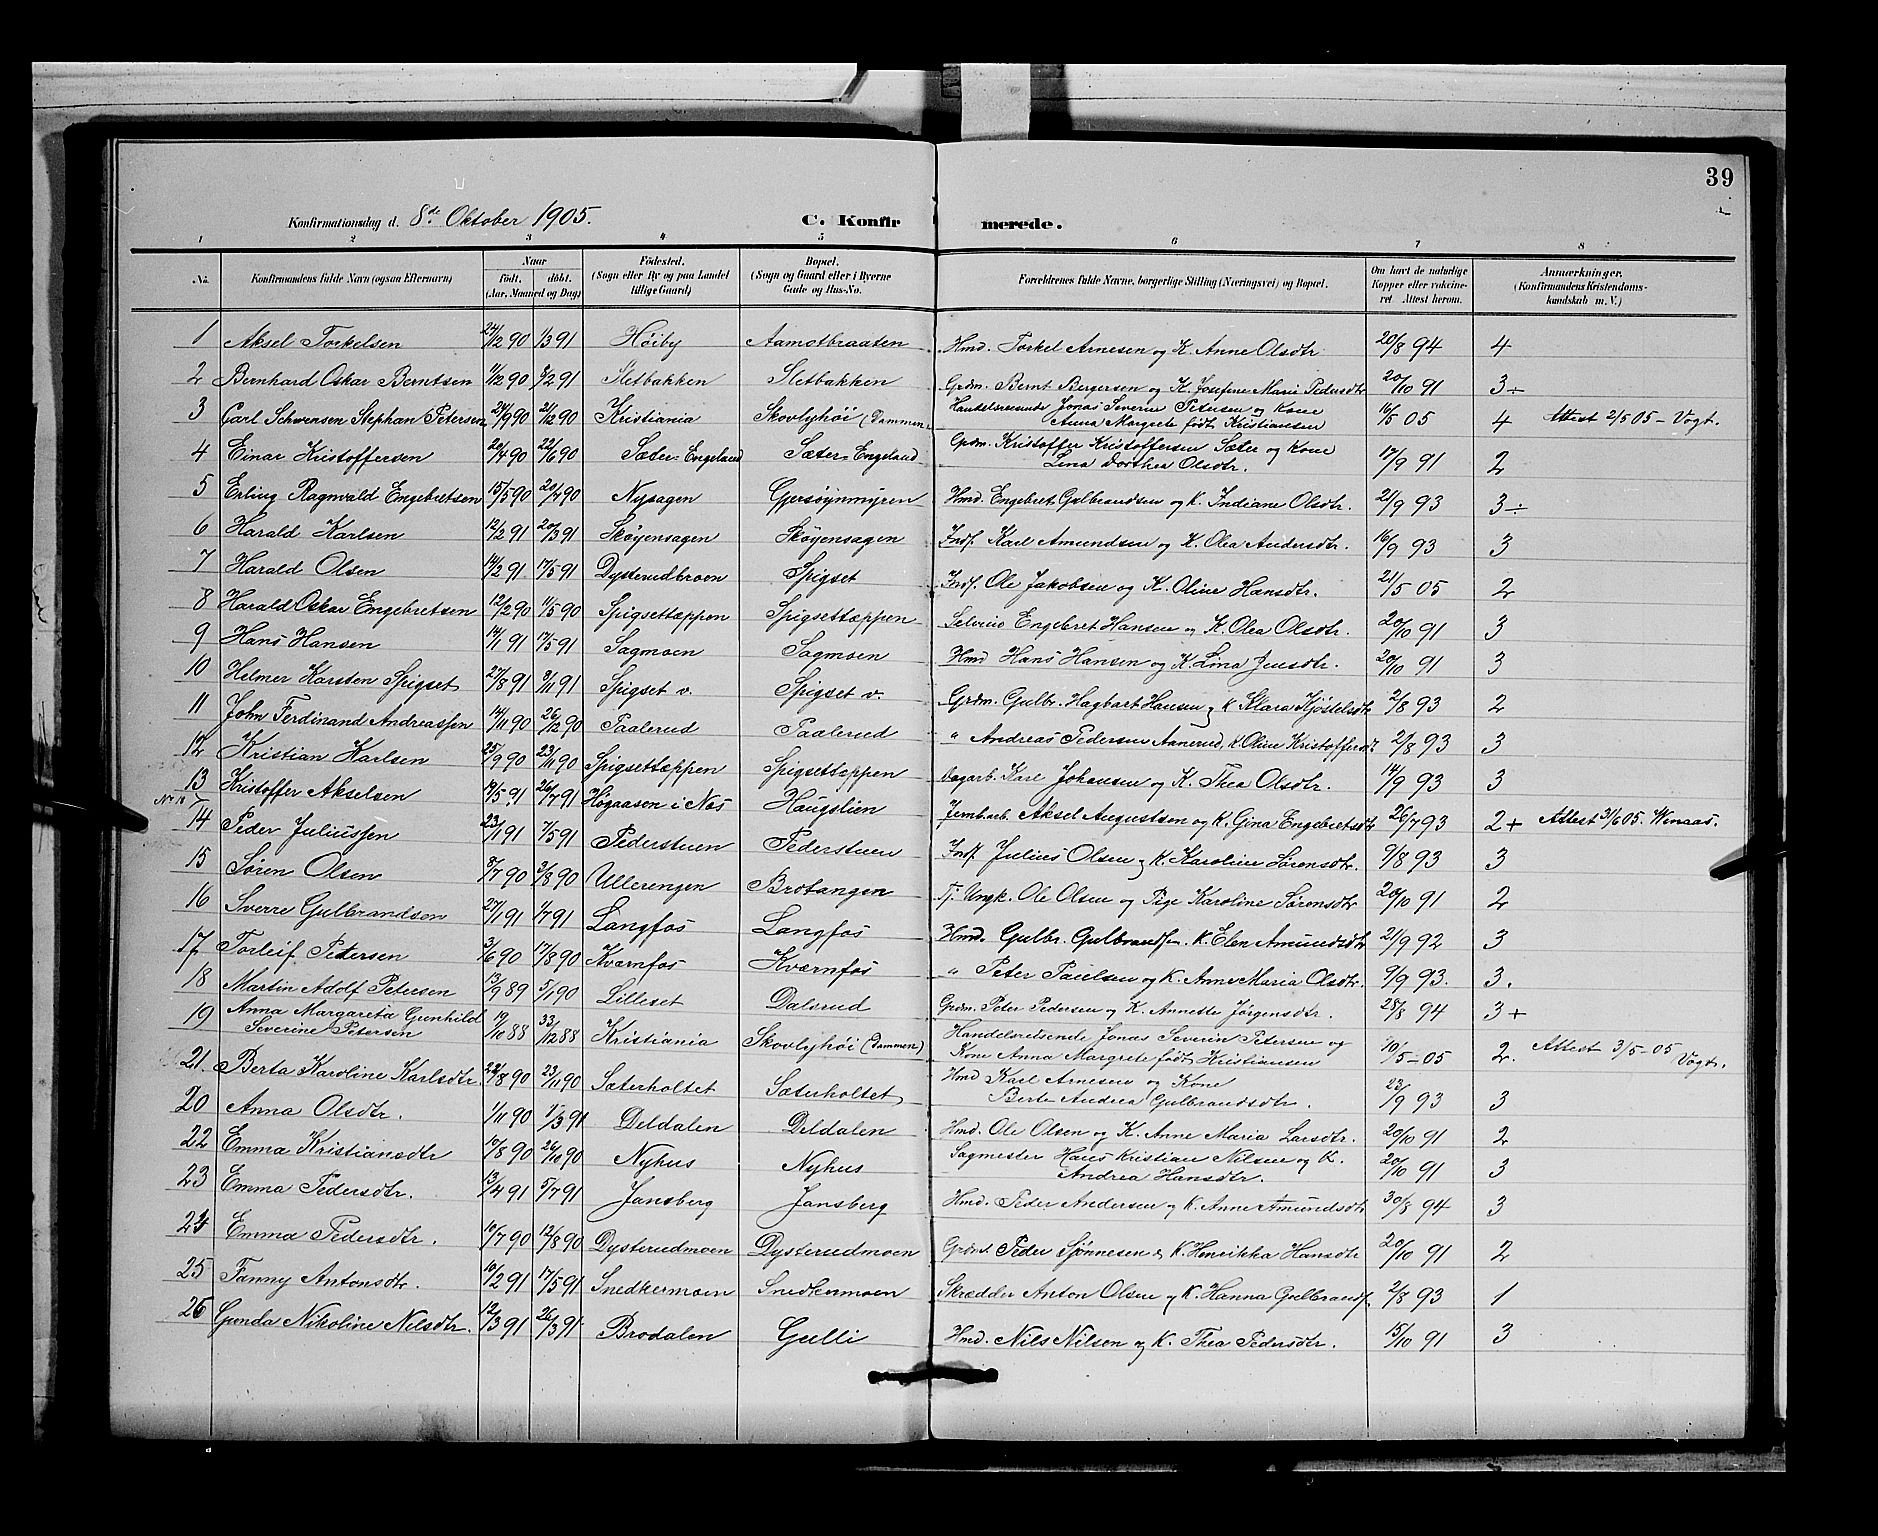 39
Konfirmationsdag d. 8de Oktober 1905. C. Konfirmerede.
1 2 3 4 5 6 7 8
No. Konfirmandens fulde Navn (ogsaa Efternavn) Naar født. døbt. (Aar, Maaned og Dag) Fødested. (Sogn eller By og paa Landet tillige Gaard) Bopæl. (Sogn og Gaard eller i Byerne Gade og Hus-No. Forældrenes fulde Navne, borgerlige Stilling (Næringsvei) og Bopæl. Om havt de naturlige Kopper eller vaccineret Attest herom. Anmærkninger. (Konfirmandens Kristendomskundskab m. V.)
1 Aksel Torkelsen 24/12 90 1/3 91 Høiby Aamotbraaten Hmd. Torkel Arnesen og K. Anne Olsdtr 20/8 94 4
2 Bernhard Oskar Berntsen 1/12 90 8/2 91 Sletbakken Sletbakken Grdm. Bernt Bergersen og K. Josefine Marie Pedersdtr 20/10 91 3÷
3 Carl Schwensen Stephan Petersen 24/9 90 21/12 90 Kristiania Skovlyhøi (Dammen) Handelsreisende Jonas Severin Petersen og Kone Anna Margrete født Kristiansen 10/5 05 4 Attest 2/5 05 - Vogt.
4 Einar Kristoffersen 20/4 90 22/6 90 Sæter-Engelund Sæter-Engelund Grdm. Kristoffer Kristoffersen Sæter og Kone Lina Dorthea Olsdtr. 17/9 91 2
5 Erling Ragnvald Engebretsen 15/5 90 20/7 90 Nysagen Gjersøynmyren Hmd. Engebret Gulbrandsen og K. Indiane Olsdtr. 21/9 93 3÷
6 Harald Karlsen 12/2 91 20/3 91 Skøyensagen Skøyensagen Indf. Karl Amundsen og K. Olea Andersdtr. 16/9 93 3
7 Harald Olsen 14/2 91. 17/5 91 Dysterudbroen Spigset Indf. Ole Jakobsen og K. Oline Hansdtr. 21/5 05 2
8 Harald Oskar Engebretsen 12/2 90 11/5 90 Spigsettæppen Spigsettæppen Selveier Engebret Hansen og K. Olea Olsdtr. 20/10 91 3
9 Hans Hansen 14/1 91 17/5 91 Sagmoen Sagmoen Hmd Hans Hansen og K. Lina Jensdtr. 20/10 91 3
10 Helmer Karsten Spigset 27/8 91 3/11 91 Spigset v. Spigset v. Grdm. Gulbr. Hagbart Hansen og K Klara Kjøstelsdtr 2/8 93 2
11 John Ferdinand Andreassen 14/11 90 26/12 90 Paalerud Paalerud " Andreas Pedersen Aanerud, K. Oline Kristoffersdtr 2/8 93 3
12 Kristian Karlsen 25/9 90 23/11 90 Spigsettæppen Spigsettæppen Dagarb. Karl Johansen og K. Thea Olsdtr. 14/9 93 3
13 Kristoffer Akselsen 14/5 91 26/7 91 Høgaasen i Næs Haugslien Jernb.arb. Aksel Augustsen og K. Gina Engebretsdtr 26/7 93 2+ Attest 31/6 05. Winaas.
14 Peder Juliussen 23/1 91 7/5 91 Pederstuen Pederstuen Indf. Julius Olsen og K. Karoline Sørensdtr. 9/8 93 3
15 Søren Olsen 8/7 90 3/8 90 Ullerengen Brotangen Tj. Ungk. Ole Olsen og Pige Karoline Sørensdtr 20/10 91 2
16 Sverre Gulbrandsen 27/1 91 1/7 91 Langfos Langfos Hmd. Gulbr. Gulbrandsen. K. Elen Amundsdtr 21/9 92 3
17 Torleif Petersen 3/6 90 17/8 90 Kværnfos Kværnfos " Peter Paulsen og K. Anne Maria Olsdtr. 9/9 93. 3.
18 Martin Adolf Petersen 13/9 89 5/1 90 Lilleset Dalsrud Grdm. Peter Pedersen og K. Annette Jørgensdtr. 28/8 94 3+
19 Anna Margareta Gunhild Severine Petersen 19/10 88 33/12 88 Kristiania Skovlyhøi (Dammen) Handelsreisende Jonas Severin Petersen og Kone Anna Margrete født Kristiansen 10/5-05 2. Attest 3/5-05 Vogt.
21. Berta Karoline Karlsdtr 22/8 90 23/11 90 Sæterholtet Sæterholtet Hmd Karl Arnesen og Kone Berte Andrea Gulbrandsdtr. 23/9 93 3
20 Anna Olsdtr. 1/11 90 1/3 91 Deldalen Deldalen Hmd. Ole Olsen og K. Anne Maria Larsdtr. 20/10 91 2
22 Emma Kristiansdtr 14/8 90 26/10 90 Nyhus Nyhus Sagmester Hans Kristian Nilsen og K. Andrea Hansdtr. 20/10 91 3
23 Emma Pedersdtr. 13/4 91 5/7 91 Jansberg Jansberg Hmd. Peder Andersen og K. Anne Amundsdtr 30/8 94 3
24 Emma Pedersdtr. 10/7 90 12/8 90 Dysterudmoen Dysterudmoen Grdm. Peder Sønnesen & K. Henrikka Hansdtr 20/10 91 2
25 Fanny Antonsdtr. 10/2 91 17/5 91 Snedkermoen Snedkermoen Skrædder Anton Olsen og K. Hanna Gulbrandsd. 2/8 93 1
26 Gunda Nikoline Nilsdtr. 12/3 91 26/3 91. Brodalen Gulli Hmd. Nils Nilsen og K. Thea Pedersdtr. 15/10 91 3